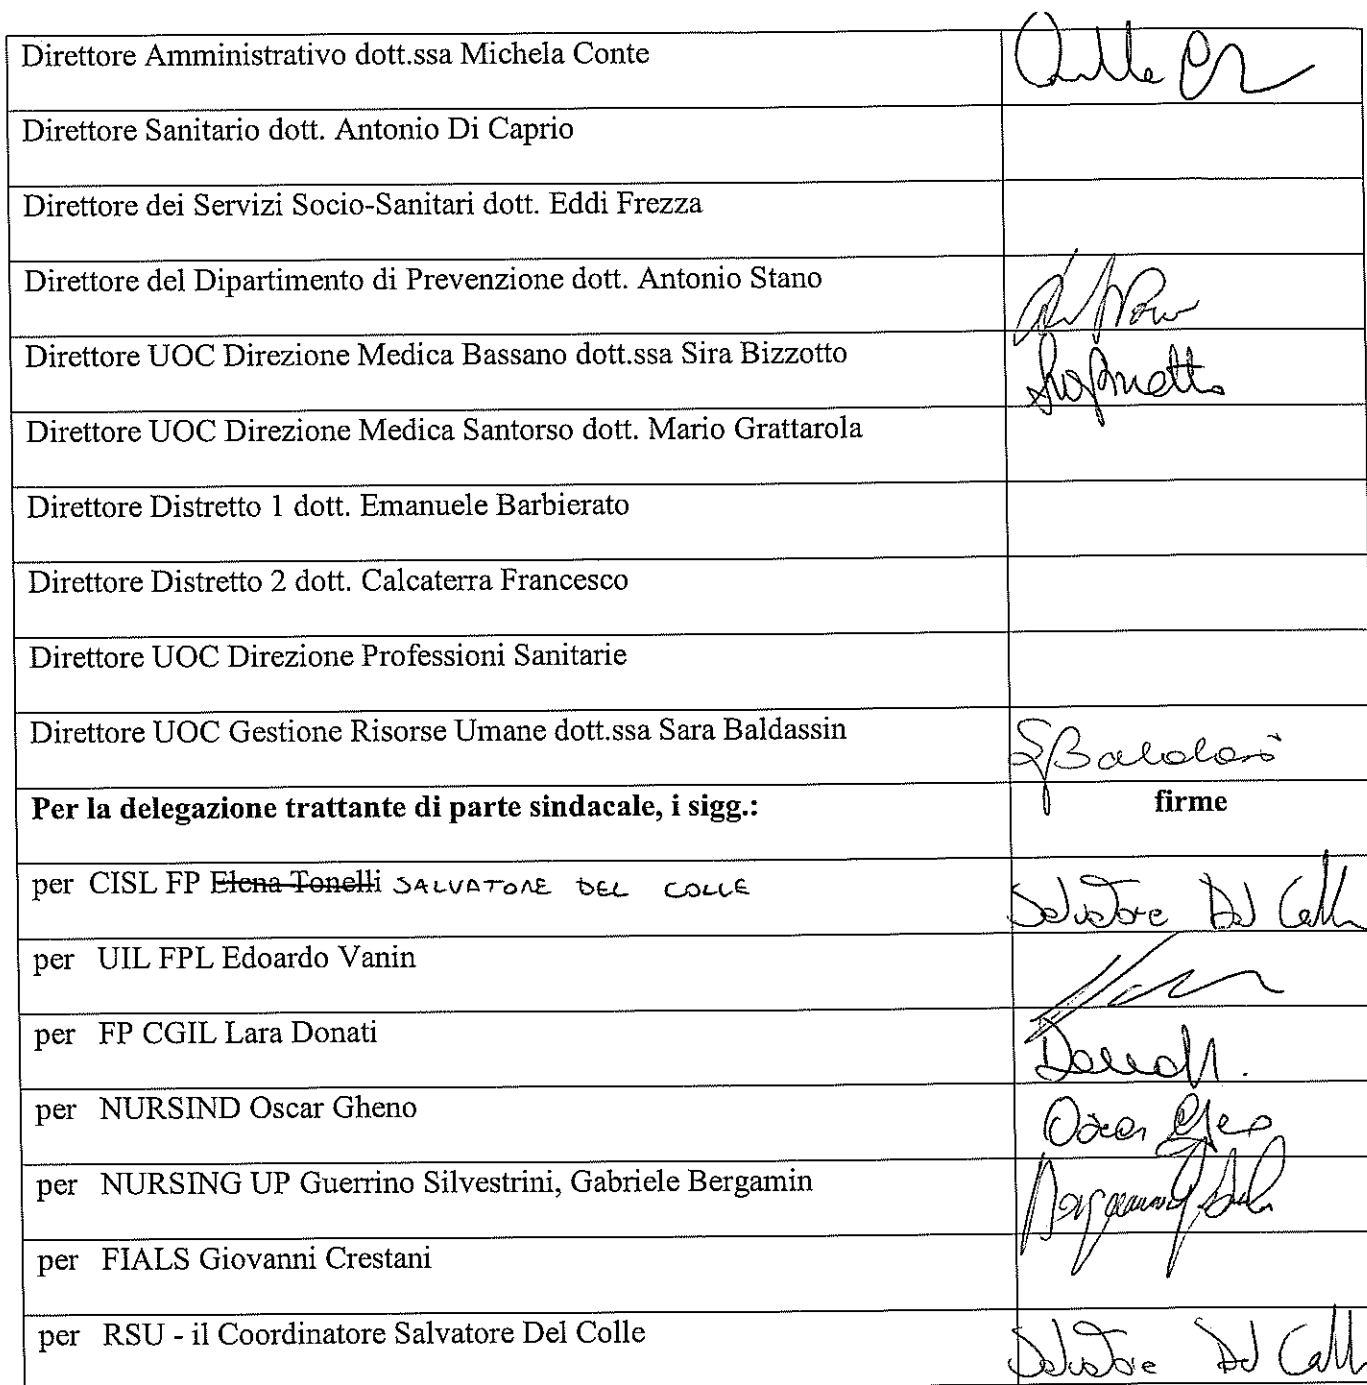 Direttore Amministrativo dott.ssa Michela Conte
Direttore Sanitario dott. Antonio Di Caprio
Direttore dei Servizi Socio-Sanitari dott. Eddi Frezza
Direttore del Dipartimento di Prevenzione dott. Antonio Stano
Direttore UOC Direzione Medica Bassano dott.ssa Sira Bizzotto
Direttore UOC Direzione Medica Santorso dott. Mario Grattarola
Direttore Distretto 1 dott. Emanuele Barbierato
Direttore Distretto 2 dott. Calcaterra Francesco
Direttore UOC Direzione Professioni Sanitarie
Direttore UOC Gestione Risorse Umane dott.ssa Sara Baldassin
Per la delegazione trattante di parte sindacale, i sigg.: firme
per CISL FP Elena Tonelli SALVATORE DEL COLLE Salvatore Del Colle
per UIL FPL Edoardo Vanin
per FP CGIL Lara Donati
per NURSIND Oscar Gheno Oscar Gheno
per NURSING UP Guerrino Silvestrini, Gabriele Bergamin
per FIALS Giovanni Crestani
per RSU - il Coordinatore Salvatore Del Colle Salvatore Del Colle